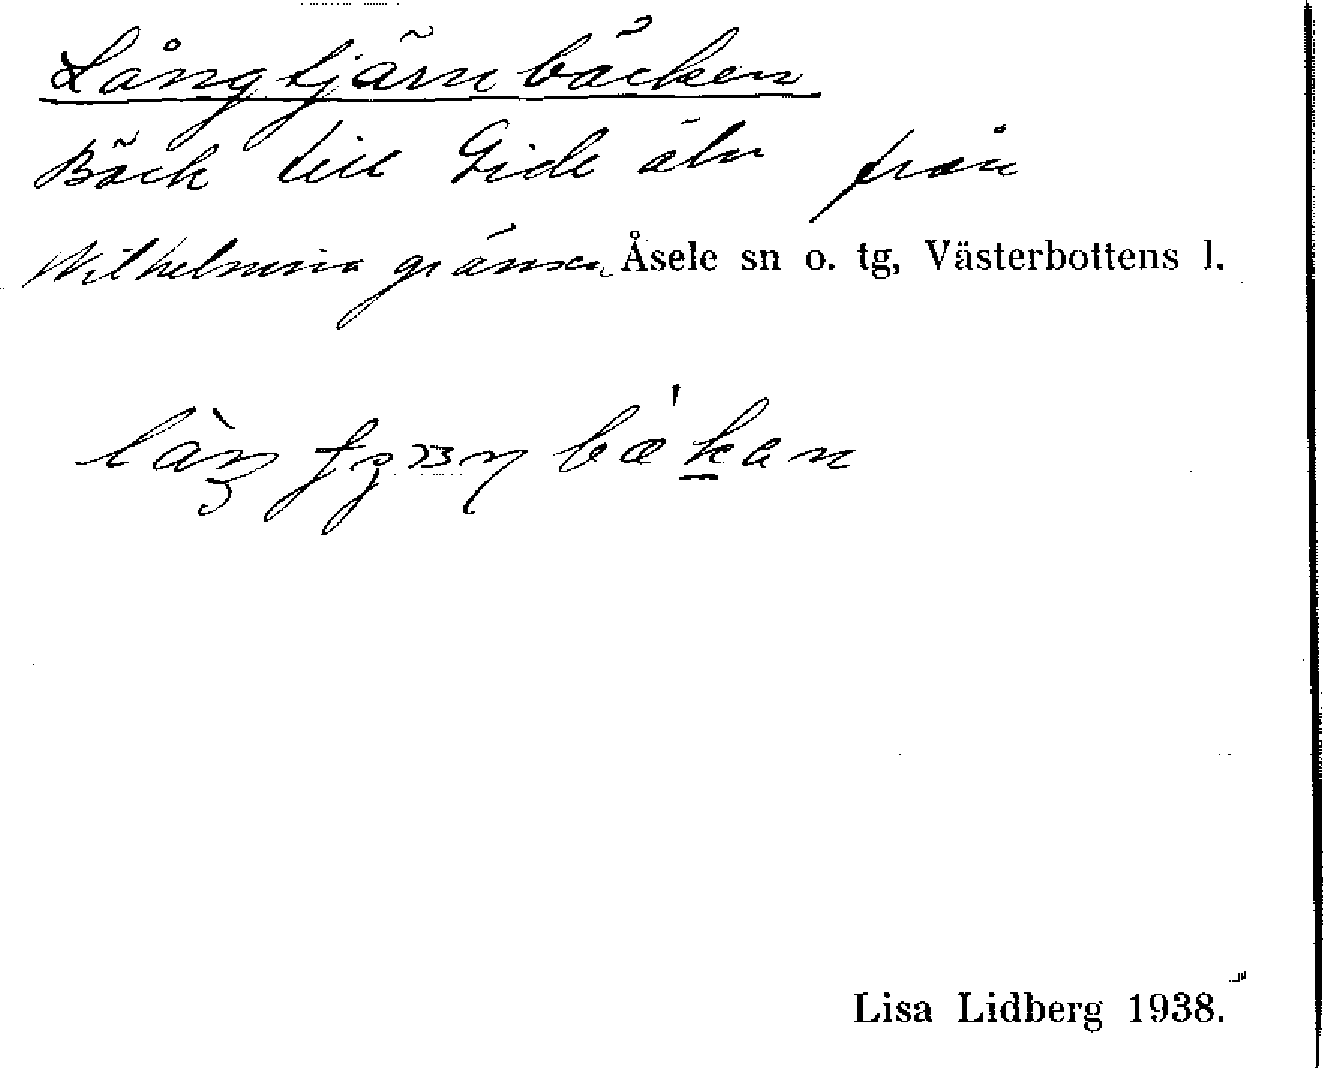 Långtjärnbäcken
Bäck till Gide älv från
Wilhelmina gränsen Åsele sn o. tg, Västerbottens l.
Lisa Lidberg 1938.